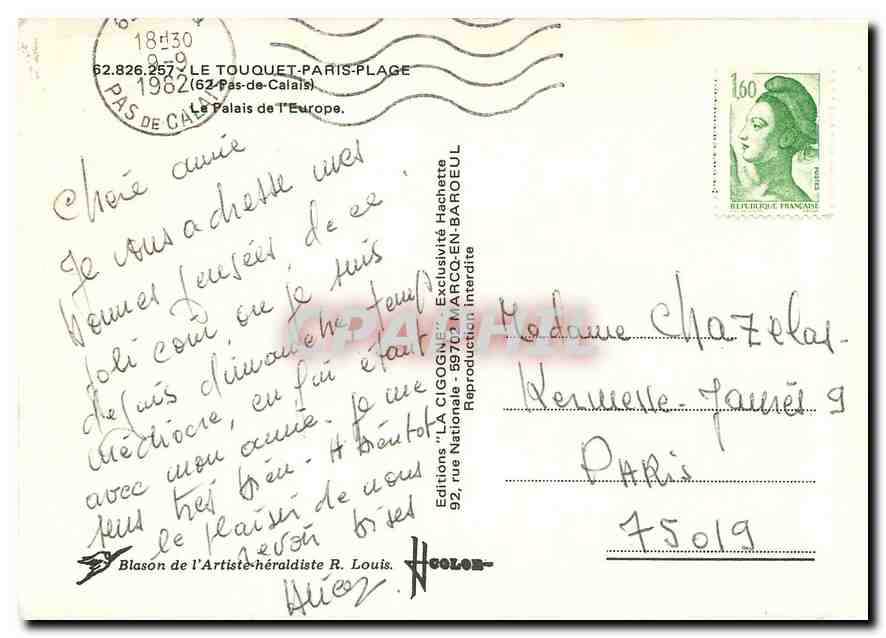 18H30
9-9
1982
PAS DE CALAIS
62.826.257 - LE TOUQUET-PARIS-PLAGE
(62-Pas-de-Calais)
Le Palais de l'Europe.
1,60
POSTES
REPUBLIQUE FRANÇAISE
Chère amie
Je vous adresse mes
bonnes pensées de ce
joli coin où je suis
depuis dimanche temps
médiocre, en fai étant
avec mon amie. Je me
sens très bien - A bientôt
le plaisir de nous
revoir bises
Editions "LA CIGOGNE" Exclusivité Hachette
92, rue Nationale - 59702 MARCQ-EN-BAROEUL
Reproduction interdite
CPAPHIL
Madame Chazelas
Kermesse-Jaurès 9
PARIS
75019
Blason de l'Artiste-héraldiste R. Louis.
COLOR